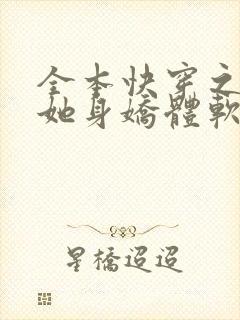 全本快穿之
她身嬌體軟
星橋迢迢